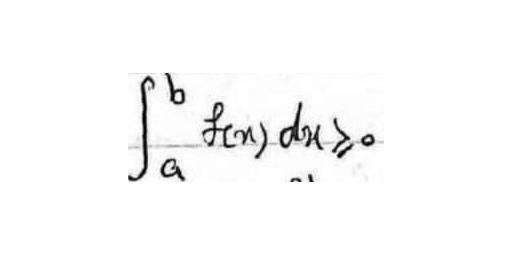 ∫_a^b f(x) dx ⩾ 0